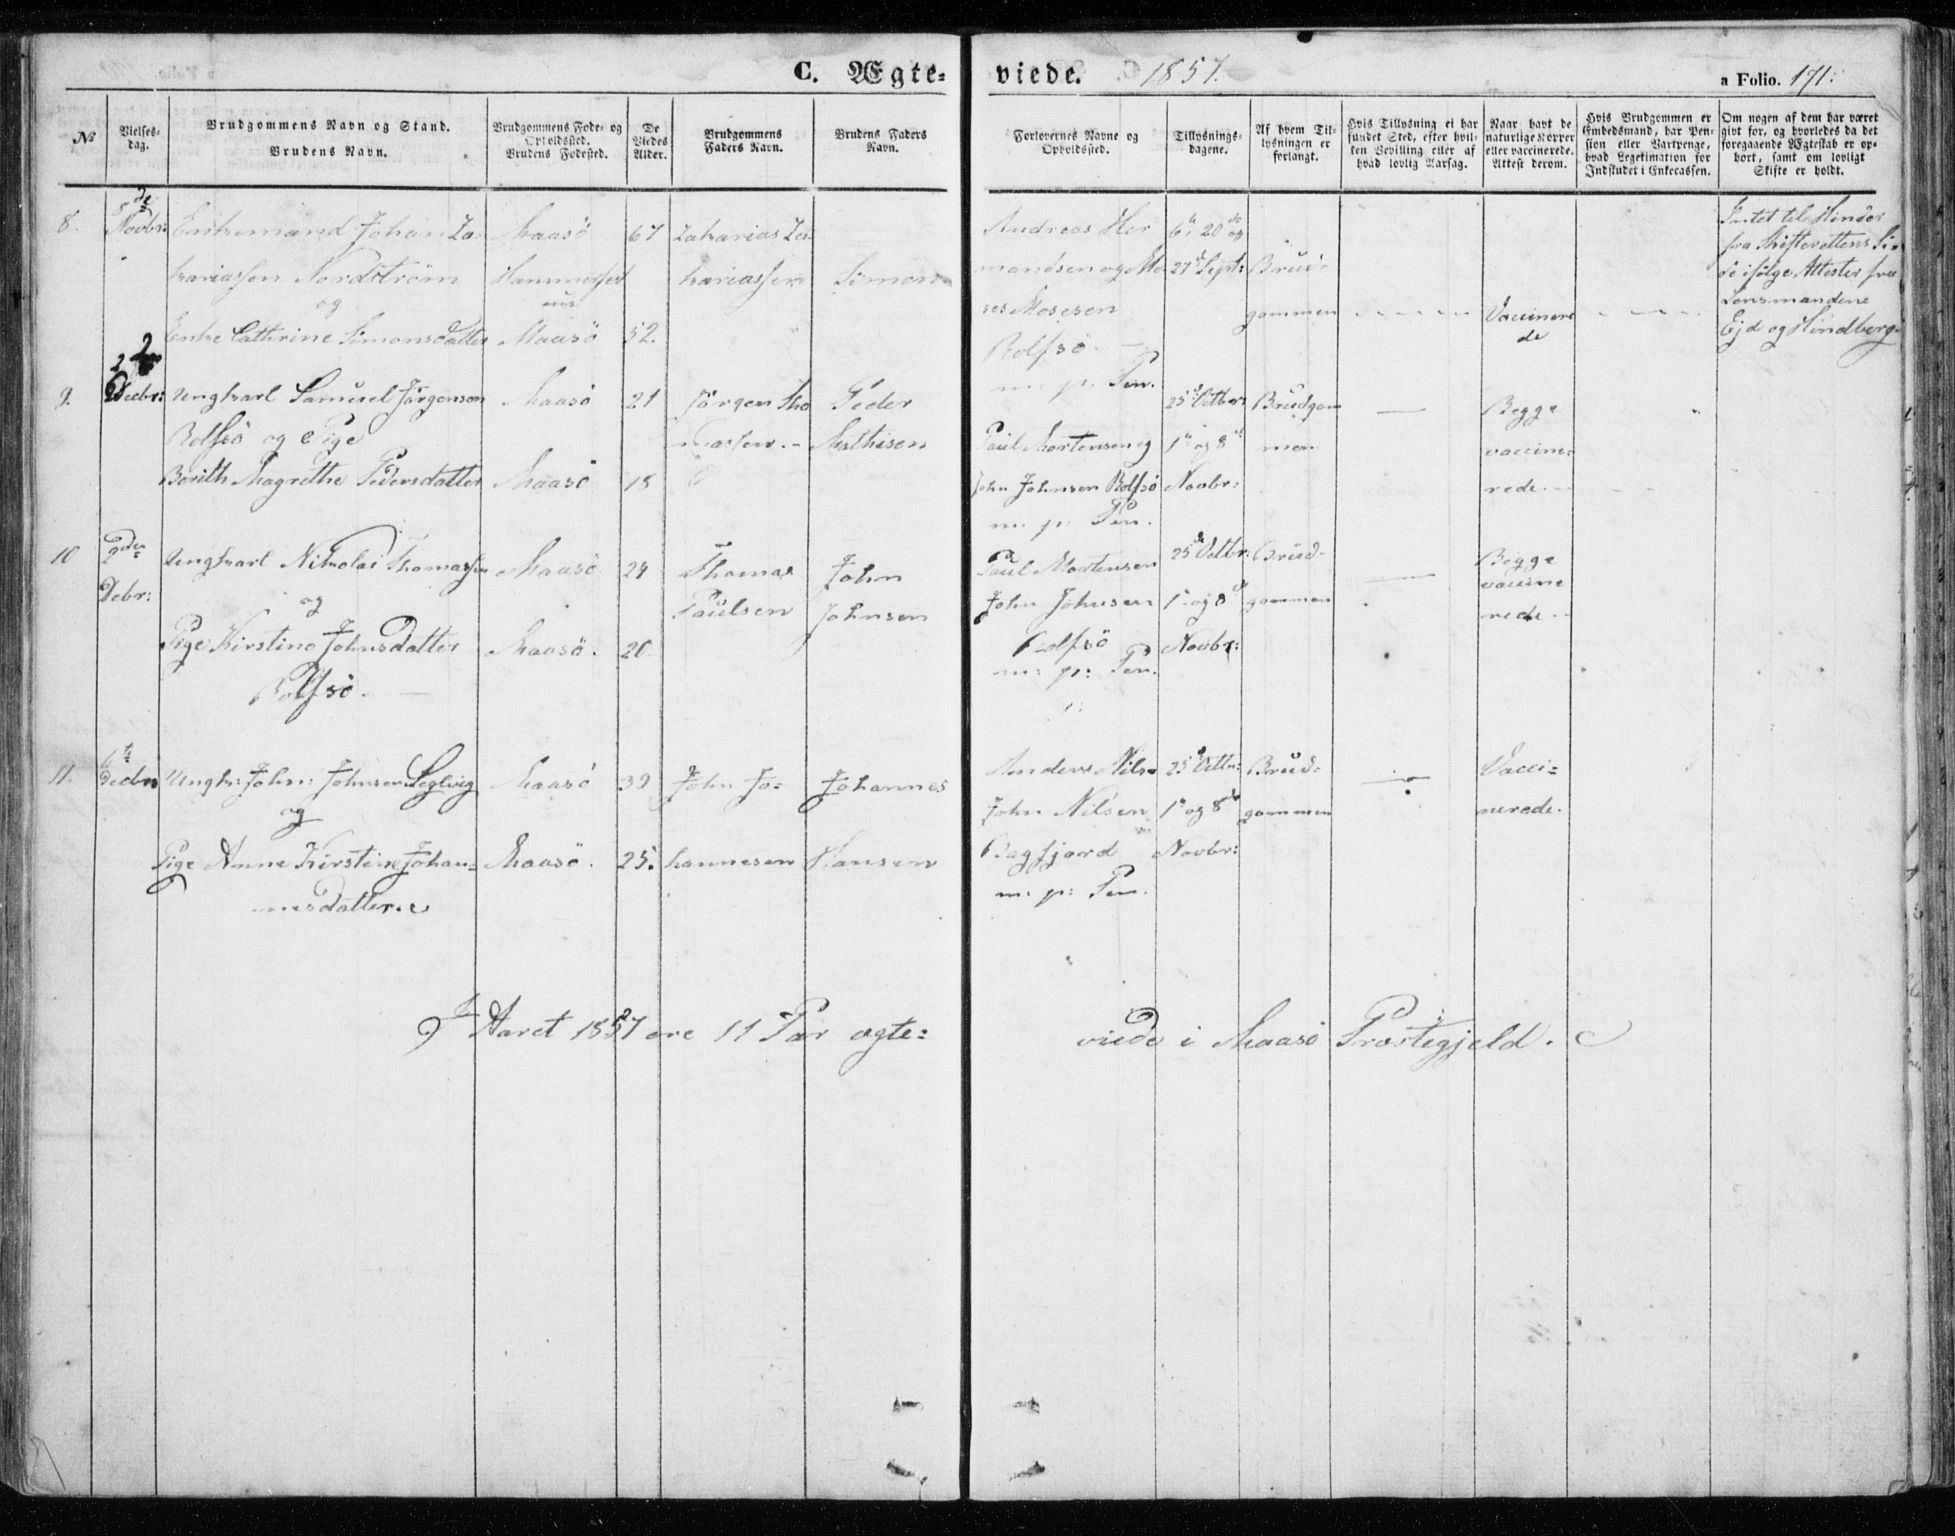 C. Ægte=
viede. 1857.
a Folio. 171:
No
Vielses-
dag.
Brudgommens Navn og Stand.
Brudens Navn.
Brudgommens Føde- og
Opholdssted.
Brudens Fødested.
De
Viedes
Alder.
Brudgommens
Faders Navn.
Brudens Faders
Navn.
Forlovernes Navne og
Opholdssted.
Tillysnings-
dagene.
Af hvem Til-
lysningen er
forlangt.
Hvis Tillysning ei har
fundet Sted, efter hvil-
ken Bevilling eller af
hvad lovlig Aarsag.
Naar havt de
naturlige Kopper
eller vaccinerede.
Attest derom.
Hvis Brudgommen er
Embedsmand, har Pen-
sion eller Vartpenge,
hvad Legetimation for
Indskudet i Enkecassen.
Om nogen af dem har været
givt for, og hvorledes da det
foregaaende Ægteskab er op-
hørt, samt om lovligt
Skifte er holdt.
8.
Novbr:
Enkemand Johan Za-
kariassen Nordström
og
Enke Cathrine Simonsdatter
Maasö
Hammerfest
Maasö
67
52.
Zakarias Za-
kariassen
Simon
Andreas Her
mandsen og Mo
ses Mosesen
Rolfsö
6te, 20de og
27de Septr:
Brud-
gommen
Vaccinere
de
Intet til Hinder
fra Skifterettens Si-
de ifølge Attester fra
Lensmandene
Ejd og Hindberg
9.
2
Decbr:
Ungkarl Samuel Jörgensen
Rolfsö og Pige
Berith Magrethe Pedersdatter
Maasö
Maasö
21
18
Jörgen Tho
massen.
Peder
Mathisen
m: p: Pen.
Paul Mortensen og
John Johnsen Rolfsö
25de Octbr:
1te og 8de
Novbr:
Brudgom
men
Begge
vaccine-
rede
10
2den
Debr:
Ungkarl Nikolai Thomassen
og
Pige Kirstine Johnsdatter
Rolfsö.
Maasö
Maasö.
24
20.
Thomas
Paulsen
John
Johnsen
m: p: Pen.
Paul Mortensen
John Johnsen
Rolfsö
m: p: Pen.
25de Octbr:
1te og 8de
Novbr:
Brud-
gommen
Begge
vaccine
rede
11.
6te
Decbr
Ungk: John: Johnsen Seglvig
og
Pige Anne Kirstine Johan=
nesdatter.
Maasö
Maasö.
39
25.
John Jo=
hannesen
Johannes
Hansen
Anders Nils
John Nilsen
Bagfjord
m: p: Pen.
25de Octbr:
1te og 8de
Novbr:
Brud=
gommen
Vacci=
nerede.
I Aaret 1857 ere 11 Par ægte=
viede i Maasö Præstegjeld.